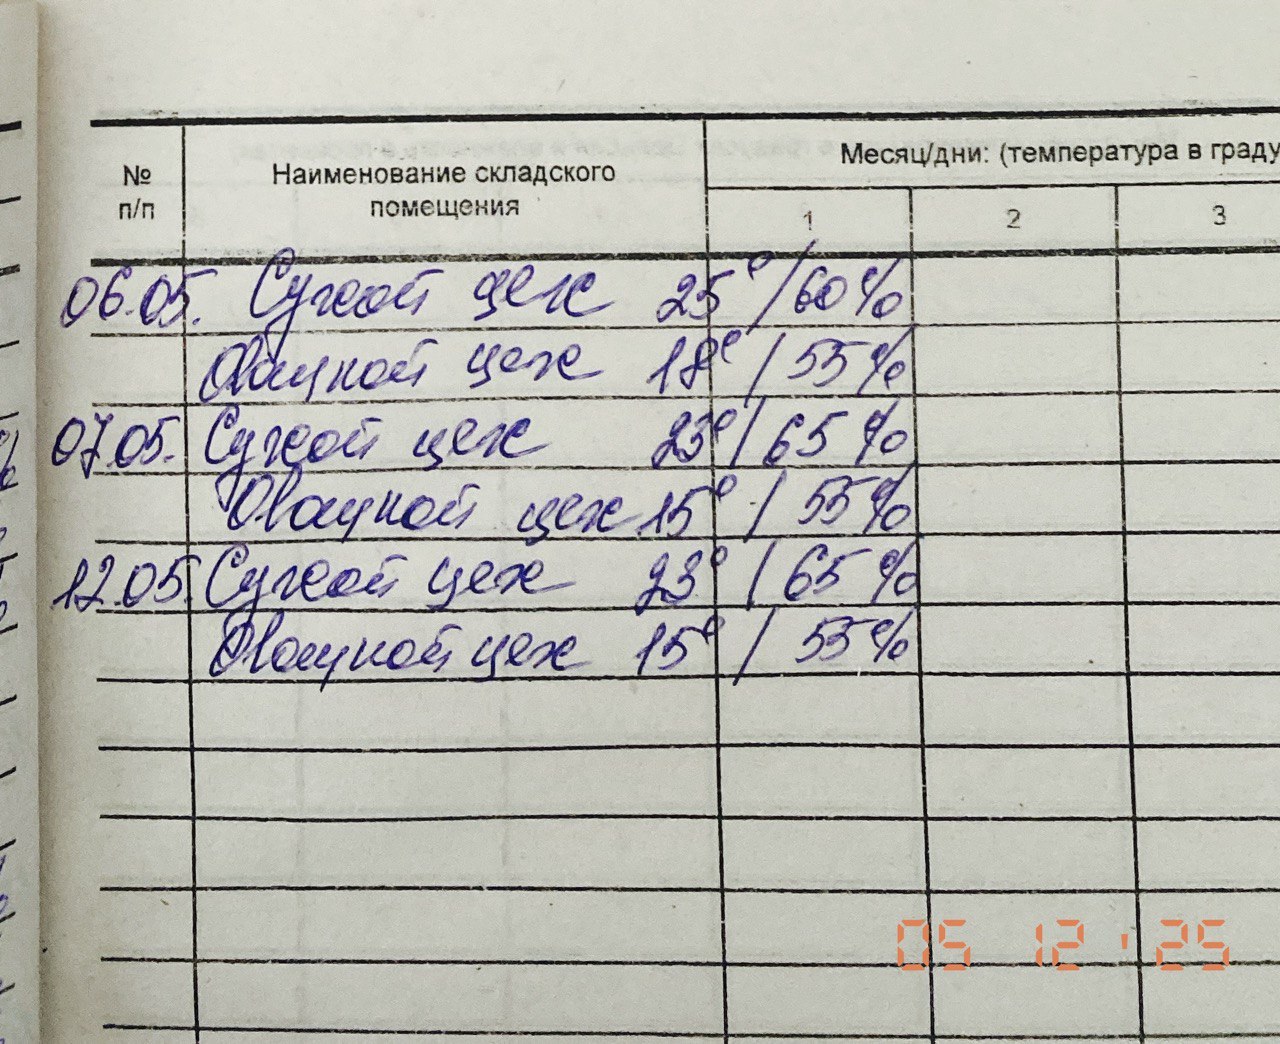 № п/п
Наименование складского помещения
Месяц/дни: (температура в граду
1 2 3
06.05. Сухой цех 25°/60%
Овощной цех 18°/55%
07.05. Сухой цех 23°/65%
Овощной цех 15°/55%
12.05. Сухой цех 23°/65%
Овощной цех 15°/55%
05 12 '25